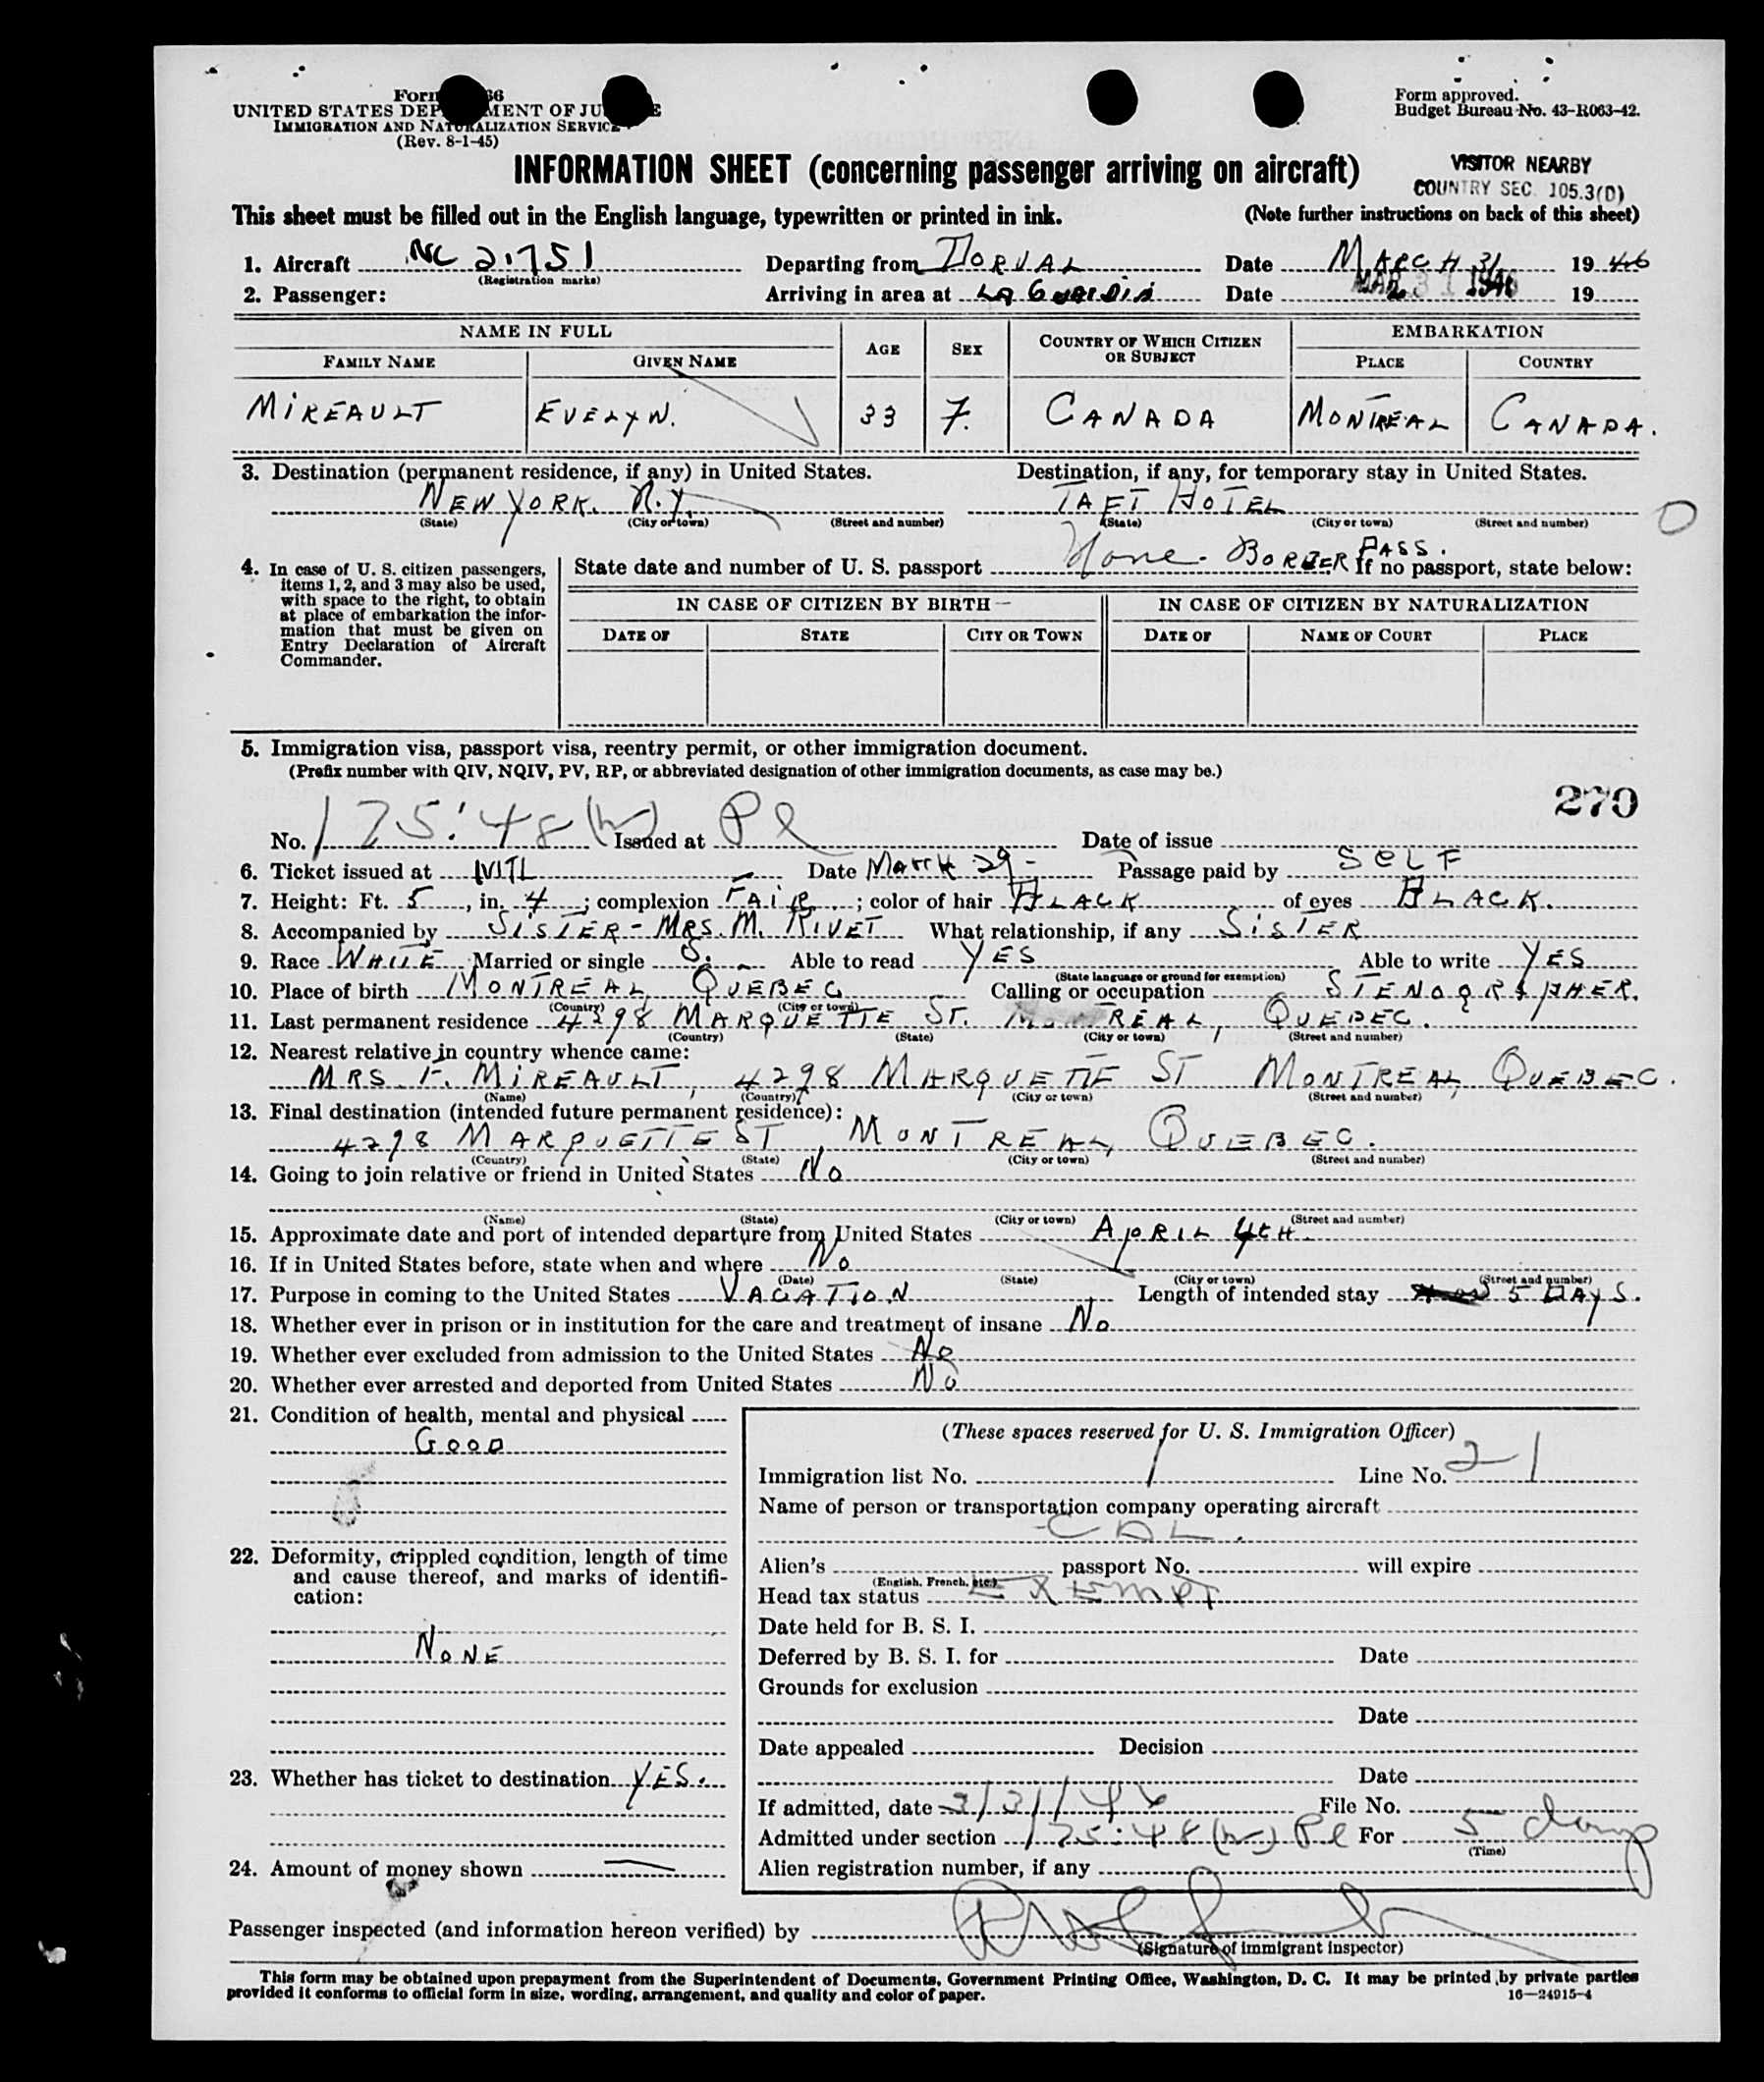 Form 66
UNITED STATES DEP MENT OF JU E
IMMIGRATION AND NATURALIZATION SERVICE
(Rev. 8-1-45)
Form approved.
Budget Bureau No. 43-R063-42.
INFORMATION SHEET (concerning passenger arriving on aircraft)
VISITOR NEARBY
COUNTRY SEC. 105.3(D)
This sheet must be filled out in the English language, typewritten or printed in ink. (Note further instructions on back of this sheet)
1. Aircraft NC 21751 Departing from DORVAL Date MARCH 31 1946
(Registration marks)
2. Passenger: Arriving in area at La Guardia Date MAR 31 1946 19
NAME IN FULL AGE SEX COUNTRY OF WHICH CITIZEN OR SUBJECT EMBARKATION
FAMILY NAME GIVEN NAME PLACE COUNTRY
MIREAULT EVELYN. 33 F. CANADA MONTREAL CANADA.
3. Destination (permanent residence, if any) in United States. Destination, if any, for temporary stay in United States.
NEW YORK. N.Y. TAFT HOTEL
(State) (City or town) (Street and number) (State) (City or town) (Street and number)
4. In case of U. S. citizen passengers, items 1, 2, and 3 may also be used, with space to the right, to obtain at place of embarkation the information that must be given on Entry Declaration of Aircraft Commander.
State date and number of U. S. passport None - BORDER PASS. If no passport, state below:
IN CASE OF CITIZEN BY BIRTH IN CASE OF CITIZEN BY NATURALIZATION
DATE OF STATE CITY OR TOWN DATE OF NAME OF COURT PLACE
5. Immigration visa, passport visa, reentry permit, or other immigration document.
(Prefix number with QIV, NQIV, PV, RP, or abbreviated designation of other immigration documents, as case may be.)
270
No. 175:48 Issued at Pl Date of issue
6. Ticket issued at MTL Date March 29 - Passage paid by SELF
7. Height: Ft. 5, in. 4; complexion FAIR; color of hair BLACK of eyes BLACK.
8. Accompanied by SISTER - MRS. M. RIVET What relationship, if any SISTER
9. Race WHITE Married or single S. Able to read YES Able to write YES
(State language or ground for exemption)
10. Place of birth MONTREAL, QUEBEC Calling or occupation STENOGRAPHER.
(Country) (City or town)
11. Last permanent residence 4298 MARQUETTE ST. MONTREAL, QUEBEC.
(Country) (State) (City or town) (Street and number)
12. Nearest relative in country whence came:
MRS F. MIREAULT, 4298 MARQUETTE ST MONTREAL, QUEBEC.
(Name) (Country) (City or town) (Street and number)
13. Final destination (intended future permanent residence):
4298 MARQUETTE ST, MONTREAL, QUEBEC.
(Country) (State) (City or town) (Street and number)
14. Going to join relative or friend in United States No
(Name) (State) (City or town) (Street and number)
15. Approximate date and port of intended departure from United States APRIL 4TH.
16. If in United States before, state when and where No
(Date) (State) (City or town) (Street and number)
17. Purpose in coming to the United States VACATION Length of intended stay 5 DAYS.
18. Whether ever in prison or in institution for the care and treatment of insane No
19. Whether ever excluded from admission to the United States No
20. Whether ever arrested and deported from United States No
21. Condition of health, mental and physical
GOOD
22. Deformity, crippled condition, length of time and cause thereof, and marks of identification:
NONE
23. Whether has ticket to destination YES.
24. Amount of money shown —
(These spaces reserved for U. S. Immigration Officer)
Immigration list No. 1 Line No. 21
Name of person or transportation company operating aircraft
Alien's passport No. will expire
(English, French, etc.)
Head tax status EXEMPT
Date held for B. S. I.
Deferred by B. S. I. for Date
Grounds for exclusion
Date
Date appealed Decision
Date
If admitted, date 3/31/46 File No.
Admitted under section 175:48 Pl For 5 days
(Time)
Alien registration number, if any
Passenger inspected (and information hereon verified) by
(Signature of immigrant inspector)
This form may be obtained upon prepayment from the Superintendent of Documents, Government Printing Office, Washington, D. C. It may be printed by private parties
provided it conforms to official form in size, wording, arrangement, and quality and color of paper.
16—24915-4